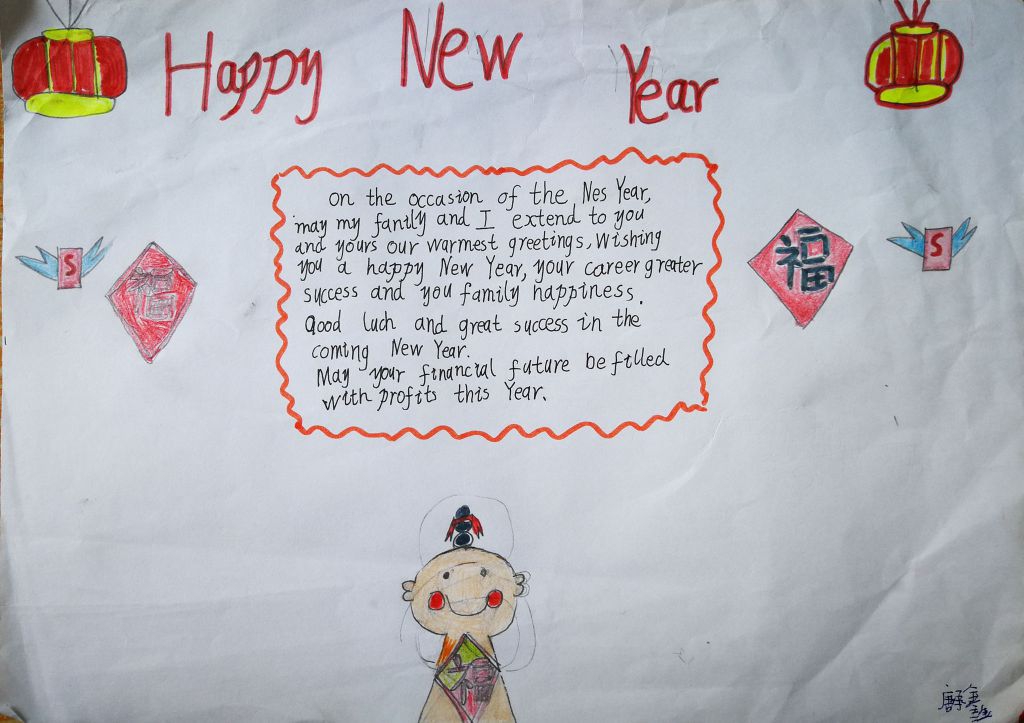 Happy New Year
On the occasion of the Nes Year,
may my fanily and I extend to you
and yours our warmest greetings. Wishing
you a happy New Year, your career greater
success and you family happiness.
Good luch and great success in the
coming New Year.
May your financial future be filled
with profits this Year.
S
福
福
S
福